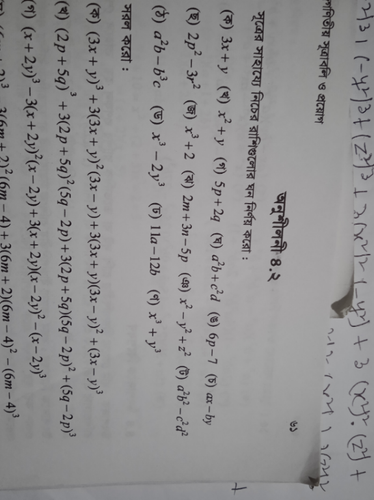 সূত্রাবলি ও প্রয়োগ
৬১
অনুশীলনী ৪.২
সূত্রের সাহায্যে নিচের রাশিগুলোর ঘন নির্ণয় করো :
(ক) 3x + y (খ) x² + y (গ) 5p + 2q (ঘ) a²b + c²d (ঙ) 6p – 7 (চ) ax – by
(ছ) 2p² – 3r² (জ) x³ + 2 (ঝ) 2m + 3n – 5p (ঞ) x² – y² + z² (ট) a²b² – c²d²
(ঠ) a²b – b³c (ড) x³ – 2y³ (ঢ) 11a – 12b (ণ) x³ + y³
সরল করো :
(ক) (3x + y)³ + 3(3x + y)²(3x – y) + 3(3x + y)(3x – y)² + (3x – y)³
(খ) (2p + 5q)³ + 3(2p + 5q)²(5q – 2p) + 3(2p + 5q)(5q – 2p)² + (5q – 2p)³
(গ) (x + 2y)³ – 3(x + 2y)²(x – 2y) + 3(x + 2y)(x – 2y)² – (x – 2y)³
3(6m + 2)²(6m – 4) + 3(6m + 2)(6m – 4)² – (6m – 4)³